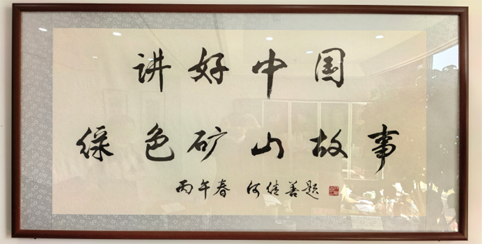 讲好中国
绿色矿山故事
丙午春 何继善题